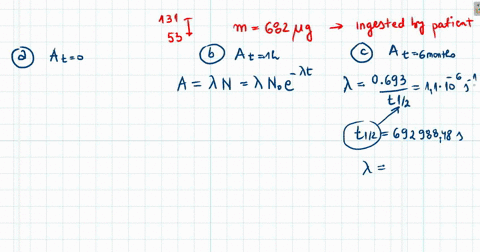 131
53 I
m = 682 μg → ingested by patient
(a) A t=0
(b) A t=1h
A = λN = λN₀e^-λt
(c) A t=6months
λ = 0.693 / t1/2 = 1,1·10^-6 s^-1
t1/2 = 692988,48 s
λ =